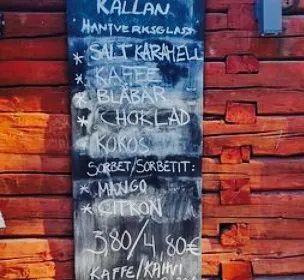 KÄLLAN
HANTVERKSGLASS
* SALT KARAMELL
* KAFFE
* BLÅBÄR
* CHOKLAD
KOKOS
SORBET/SORBETIT:
* MANGO
* CITRON
3,80/4,80€
KAFFE/KAHVI